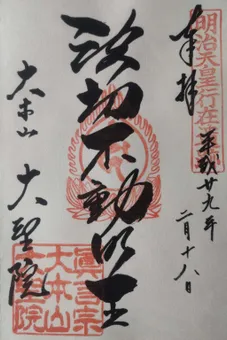 明治天皇行在
奉拝
平成廿九年
二月十八日
波切不動明王
大本山 大聖院
眞言宗
大本山
大聖院